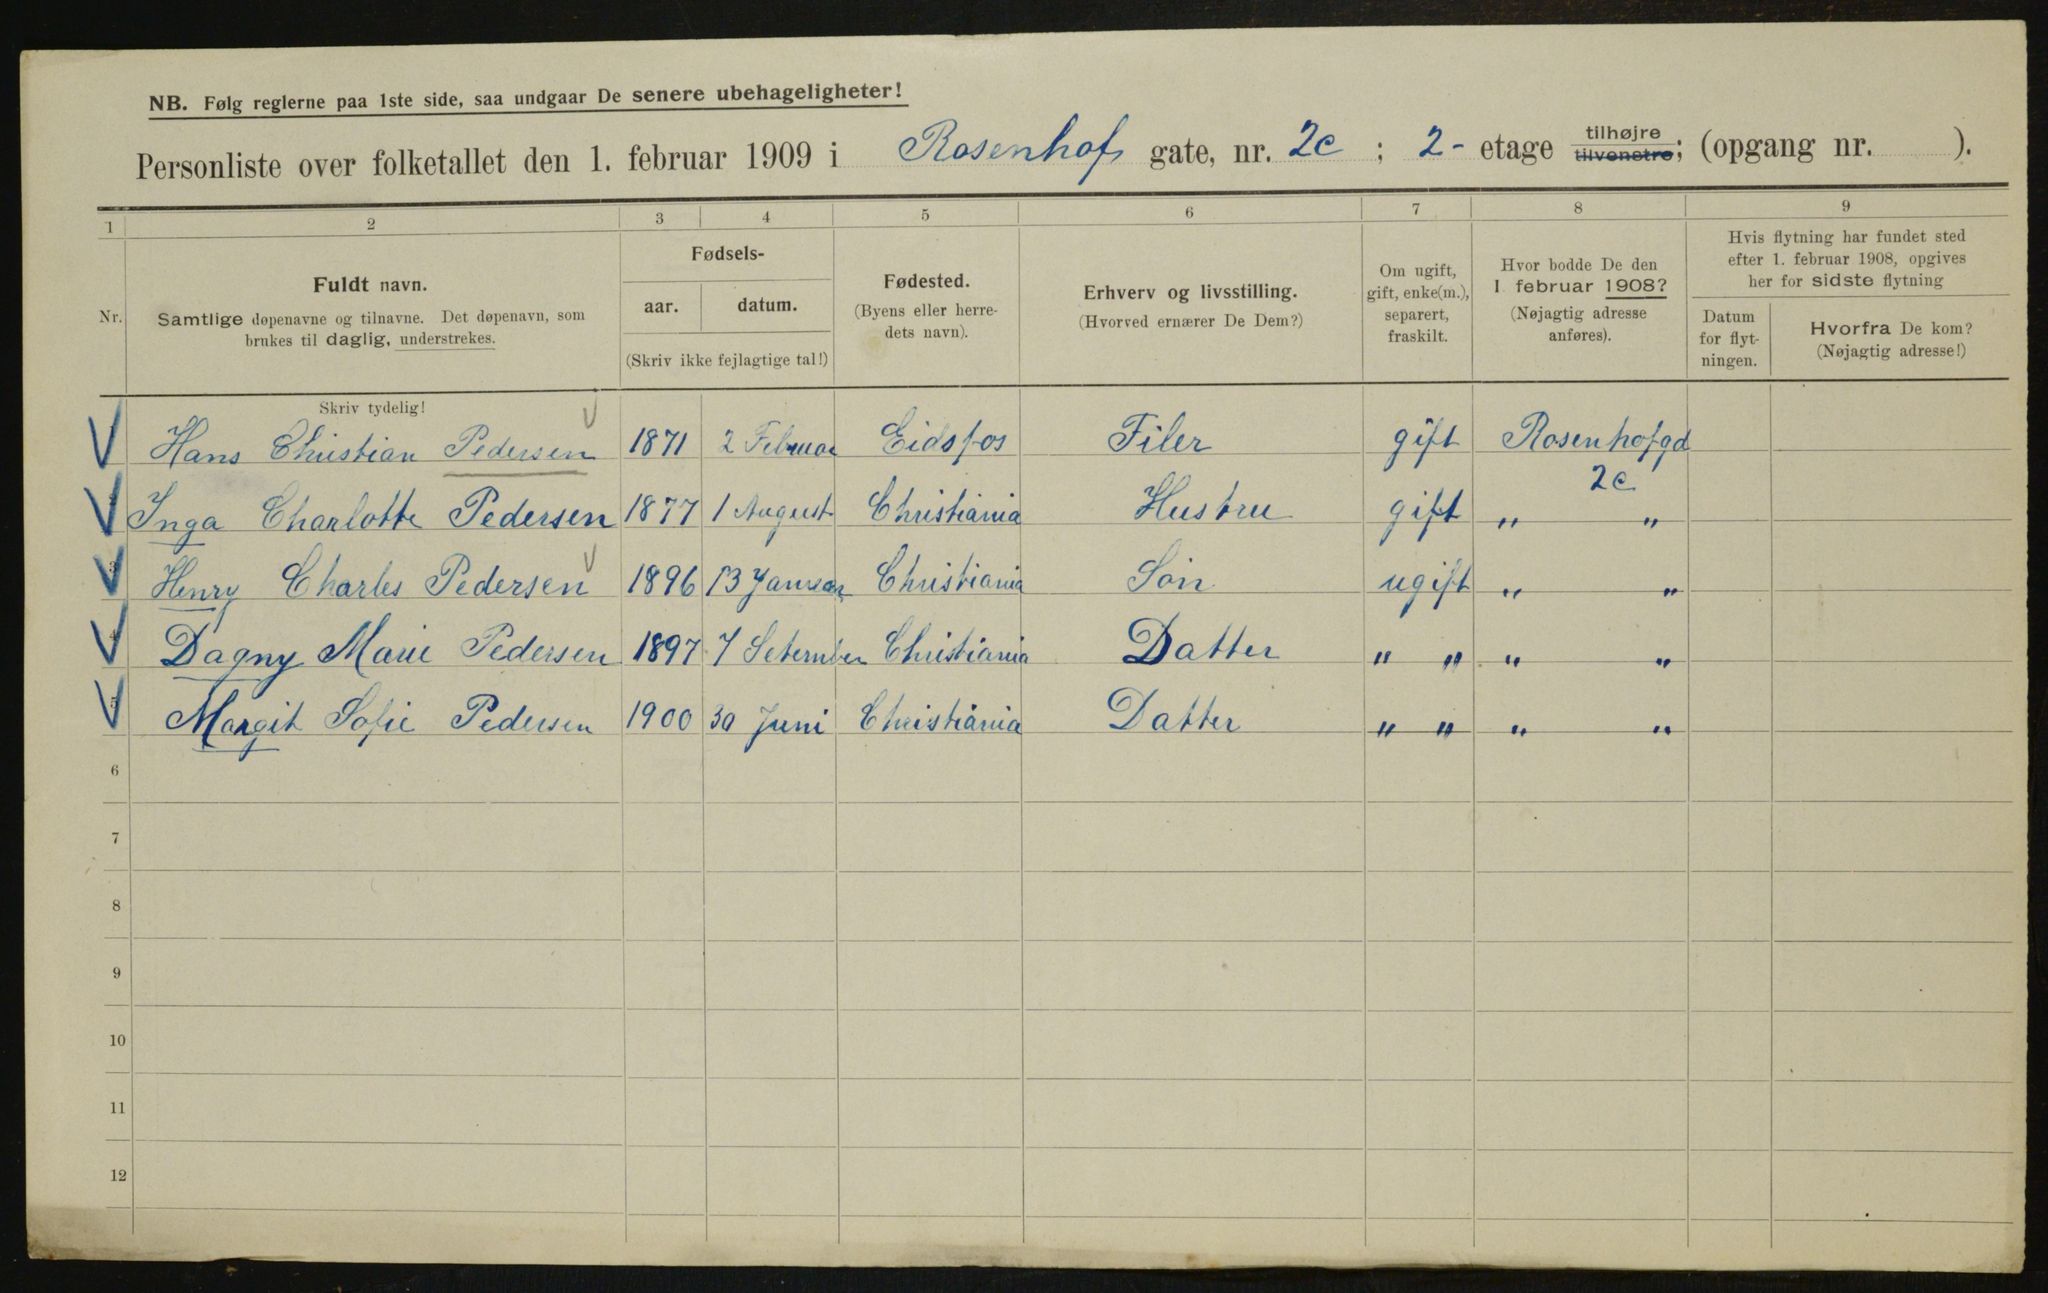 NB. Følg reglerne paa 1ste side, saa undgaar De senere ubehageligheter!
Personliste over folketallet den 1. februar 1909 i Rosenhof gate, nr. 2c ; 2- etage tilhøjre tilvenstre; (opgang nr. ).
1 2 3 4 5 6 7 8 9
Nr. Fuldt navn. Samtlige døpenavne og tilnavne. Det døpenavn, som brukes til daglig, understrekes.
Fødsels- aar. datum. (Skriv ikke fejlagtige tal!)
Fødested. (Byens eller herredets navn).
Erhverv og livsstilling. (Hvorved ernærer De Dem?)
Om ugift, gift, enke(m.), separert, fraskilt.
Hvor bodde De den 1 februar 1908? (Nøjagtig adresse anføres).
Hvis flytning har fundet sted efter 1. februar 1908, opgives her for sidste flytning
Datum for flytningen. Hvorfra De kom? (Nøjagtig adresse!)
Skriv tydelig!
Hans Christian Pedersen 1871 2 Februar Eidsfos Filer gift Rosenhofgd 2c
2 Inga Charlotte Pedersen 1877 1 August Christiania Hustru gift „ „
3 Henry Charles Pedersen 1896 13 Januar Christiania Sön ugift „ „
4 Dagny Marie Pedersen 1897 7 Setember Christiania Datter „ „ „ „
5 Margit Sofie Pedersen 1900 30 Juni Christiania Datter „ „ „ „
6
7
8
9
10
11
12